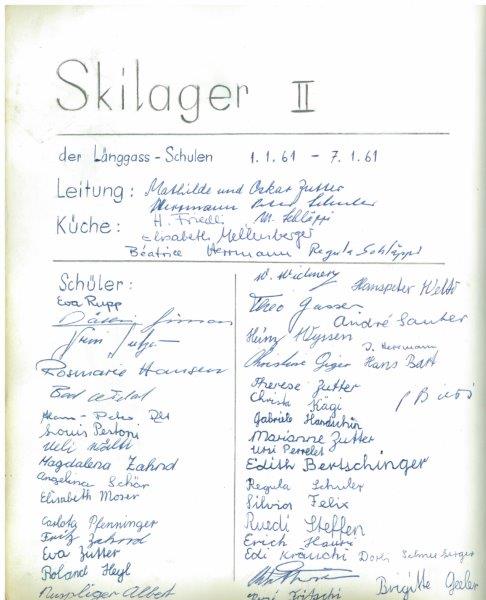 Skilager II
der Länggass-Schulen 1.1.61 - 7.1.61
Leitung: Mathilde und Oskar Zutter
Herrmann Schuler
Küche: H. Friedli M. Schläppi
Elisabeth Mellenberger
Béatrice Herrmann Regula Schläppi
Schüler:
Eva Rupp
Rosmarie Hansen
Louis Pertoni
Ueli
Magdalena Zahnd
Angelina Schär
Elisabeth Moser
Carlota Pfenninger
Fritz Zahnd
Eva Zutter
Roland Heyl
Albert
Hanspeter Welti
Theo Gasser
André Sauter
Heinz Wyssen
J. Herrmann
Christine Giger Hans Bart
Therese Zutter
Christa Kägi
Gabriele Handschin
Marianne Zutter
Ursi Perrelet
Edith Bertschinger
Regula Schuler
Silvia Felix
Ruedi Steffen
Erich Hauri
Edi Kräuchi Doris Schneeberger
Brigitte Geeler
Fritschi